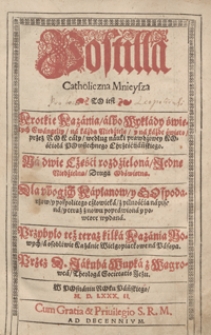 Postilla
Catholiczna Mnieysza
TO iest
Krotkie Kazánia/ álbo Wykłády świę-
tych Ewángeliy/ ná káżdą Niedzielę/ y ná káżde święto/
przez ROK cáły/ według náuki prawdziwey KO-
śćiołá POwszechnego Chrześćiáńskiego.
Ná dwie Części rozdzielona/ Jedná
Niedzielna/ Druga Odświętna.
Dla vbogich Kápłanow/ y GOspodá-
rzow/ y pospolitego człowieká/ z pilnośćią nápisá-
ná/ y teraz znowu poprawiona y po-
wtore wydána.
Przybyło też teraz kilká Kazánia No-
wych/
Przez D. Jákubá Wuyká z Wągrow-
cá/ Theologá Societatis Jesu.
W POznániu
M. D. LXXX. II
Cum Gratia & Priuilegio S. R. M.
AD DECENNIVM.